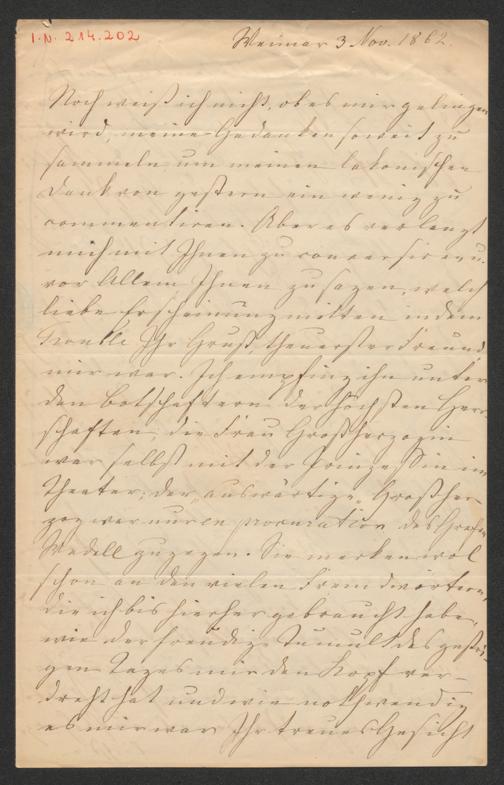 I. N. 214.202
Weimar 3 Nov. 1862.
Noch weiß ich nicht, ob es mir gelingen
wird, meine Gedanken soweit zu
sammeln um meinen lakonischen
Dank von gestern ein wenig zu
commentiren. Aber es verlangt
mich mit Ihnen zu conversiren u.
vor Allem Ihnen zu sagen, welch
liebe Erscheinung mitten in dem
Ihr Gruß theuerster Freund
mir war. Ich empfing ihn unter
den Botschaftern der höchsten Herr
schaften die Frau Großherzogin
war selbst mit der Prinzessin im
Theater; der „auswärtige“ Großher-
zog war nur en procuration des Grafen
Wedell zugegen. Sie merken wol
schon an den vielen Fremdwörtern,
die ich bis hierher gebraucht habe,
wie der freudige Tumult des gestri-
gen Tages mir den Kopf ver-
dreht hat und wie nothwendig
es mir war Ihr treues Gesicht